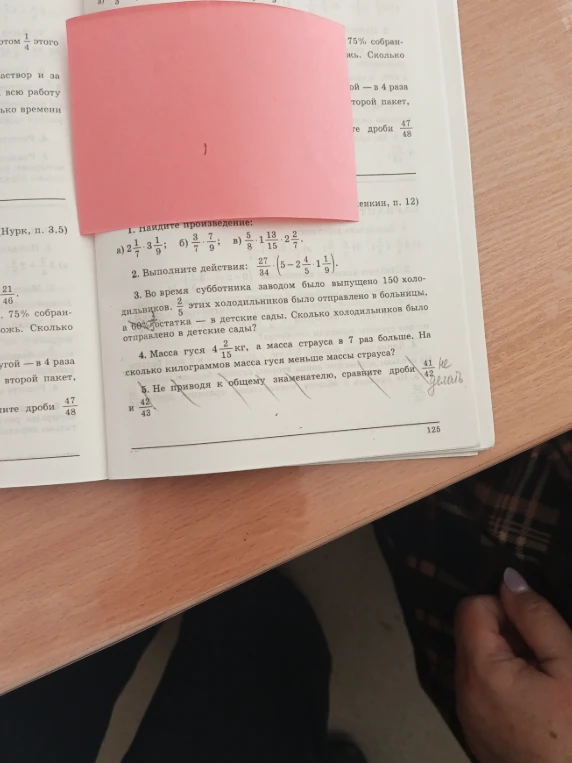 этом 1/4 этого
аствор и за
всю работу
ько времени
Нурк, п. 3.5)
21/46.
. 75% собран-
ожь. Сколько
угой — в 4 раза
второй пакет,
ите дроби 47/48
75% собран-
жь. Сколько
ой — в 4 раза
торой пакет,
те дроби 47/48
енкин, п. 12)
1. Найдите произведение:
а) 2 1/7 · 3 1/9; б) 3/7 · 7/9; в) 5/8 · 1 13/15 · 2 2/7.
2. Выполните действия: 27/34 · (5 − 2 4/5 · 1 1/9).
3. Во время субботника заводом было выпущено 150 холо-
дильников. 2/5 этих холодильников было отправлено в больницы,
а 60% остатка — в детские сады. Сколько холодильников было
отправлено в детские сады?
4. Масса гуся 4 2/15 кг, а масса страуса в 7 раз больше. На
сколько килограммов масса гуся меньше массы страуса?
5. Не приводя к общему знаменателю, сравните дроби 41/42 не
делать
и 42/43
125